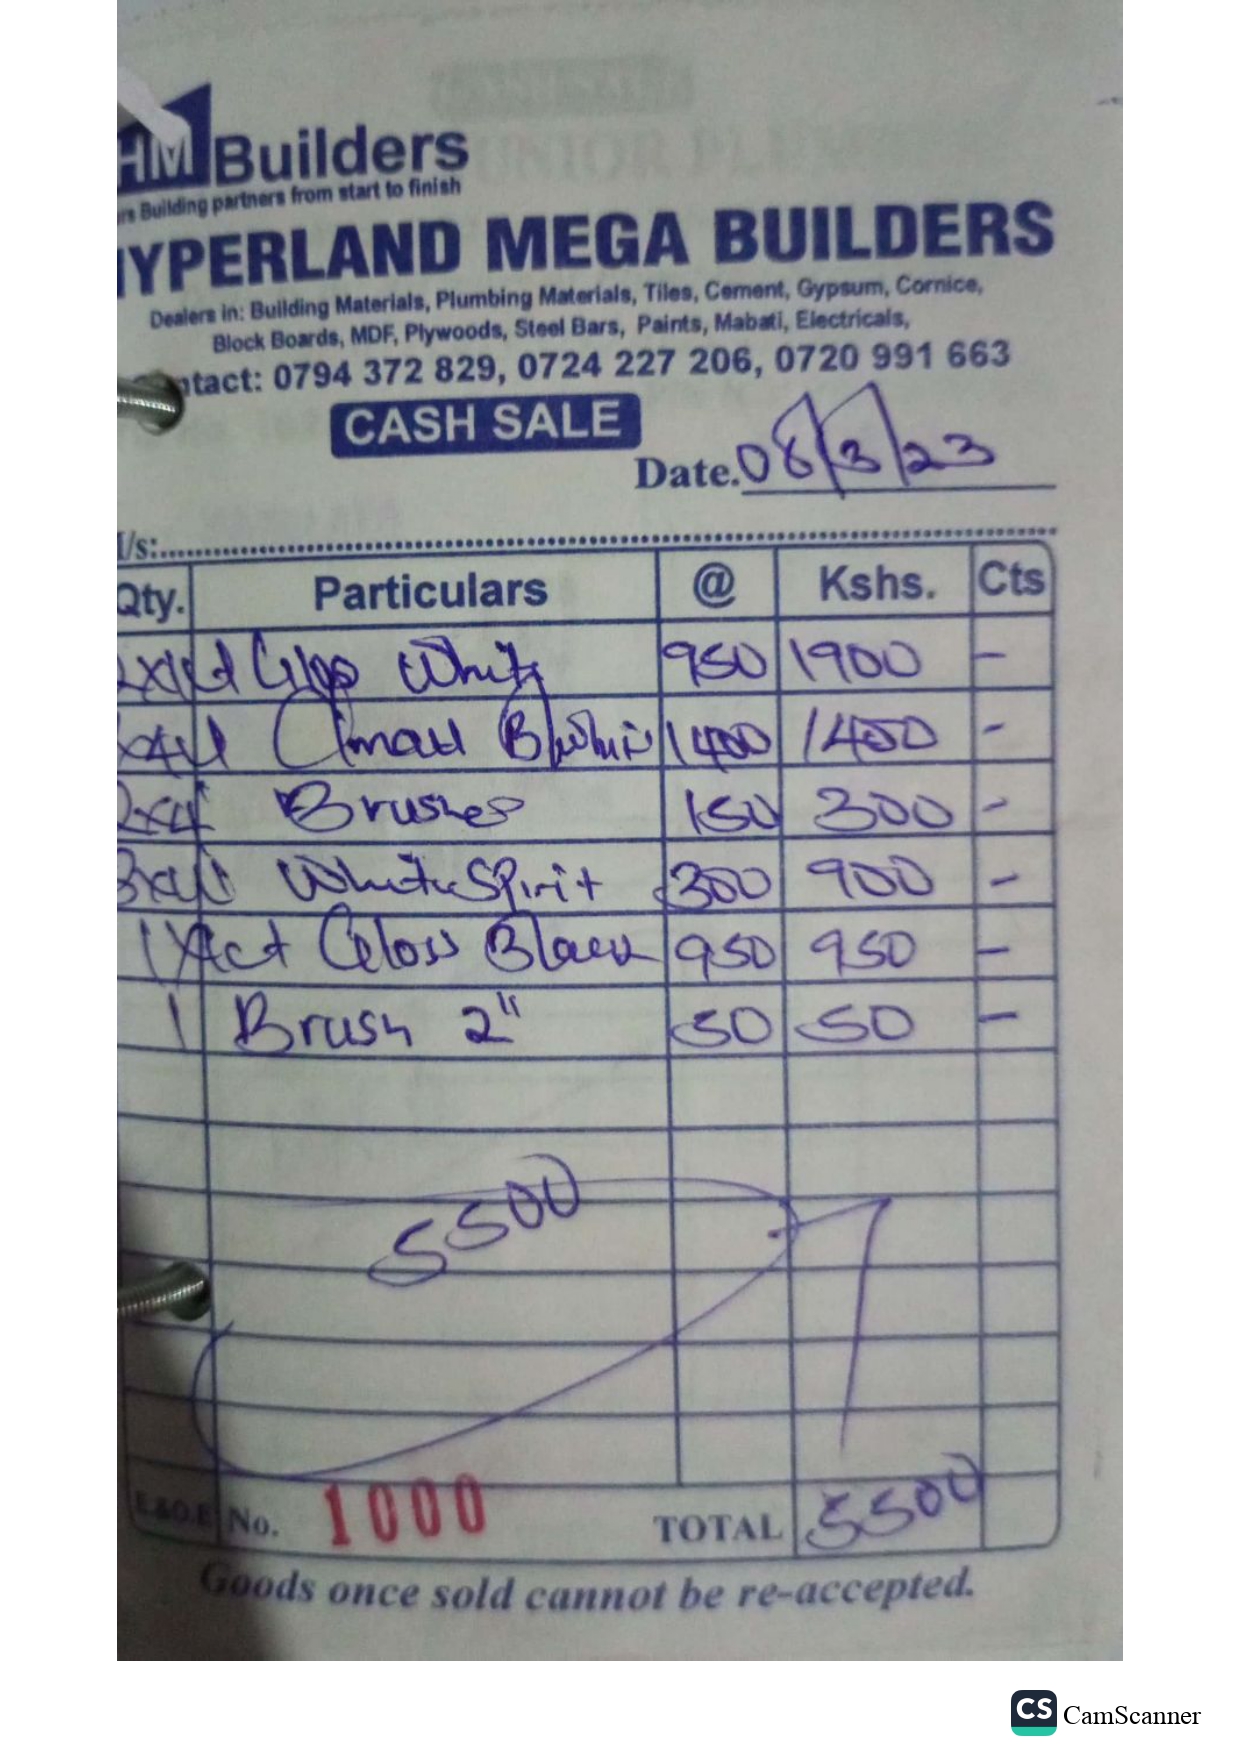 HM Builders
rs Building partners from start to finish
HYPERLAND MEGA BUILDERS
Dealers in: Building Materials, Plumbing Materials, Tiles, Cement, Gypsum, Cornice,
Block Boards, MDF, Plywoods, Steel Bars, Paints, Mabati, Electricals,
ntact: 0794 372 829, 0724 227 206, 0720 991 663
CASH SALE
Date. 08/3/23
/s:
Qty. Particulars @ Kshs. Cts
White 950 1900 -
1400 1400 -
2x4" Brushes 150 300 -
White Spirit 300 900 -
Gloss Black 950 950 -
1 Brush 2" 50 50 -
5500
E.&O.E No. 1000 TOTAL 5500
Goods once sold cannot be re-accepted.
CS CamScanner